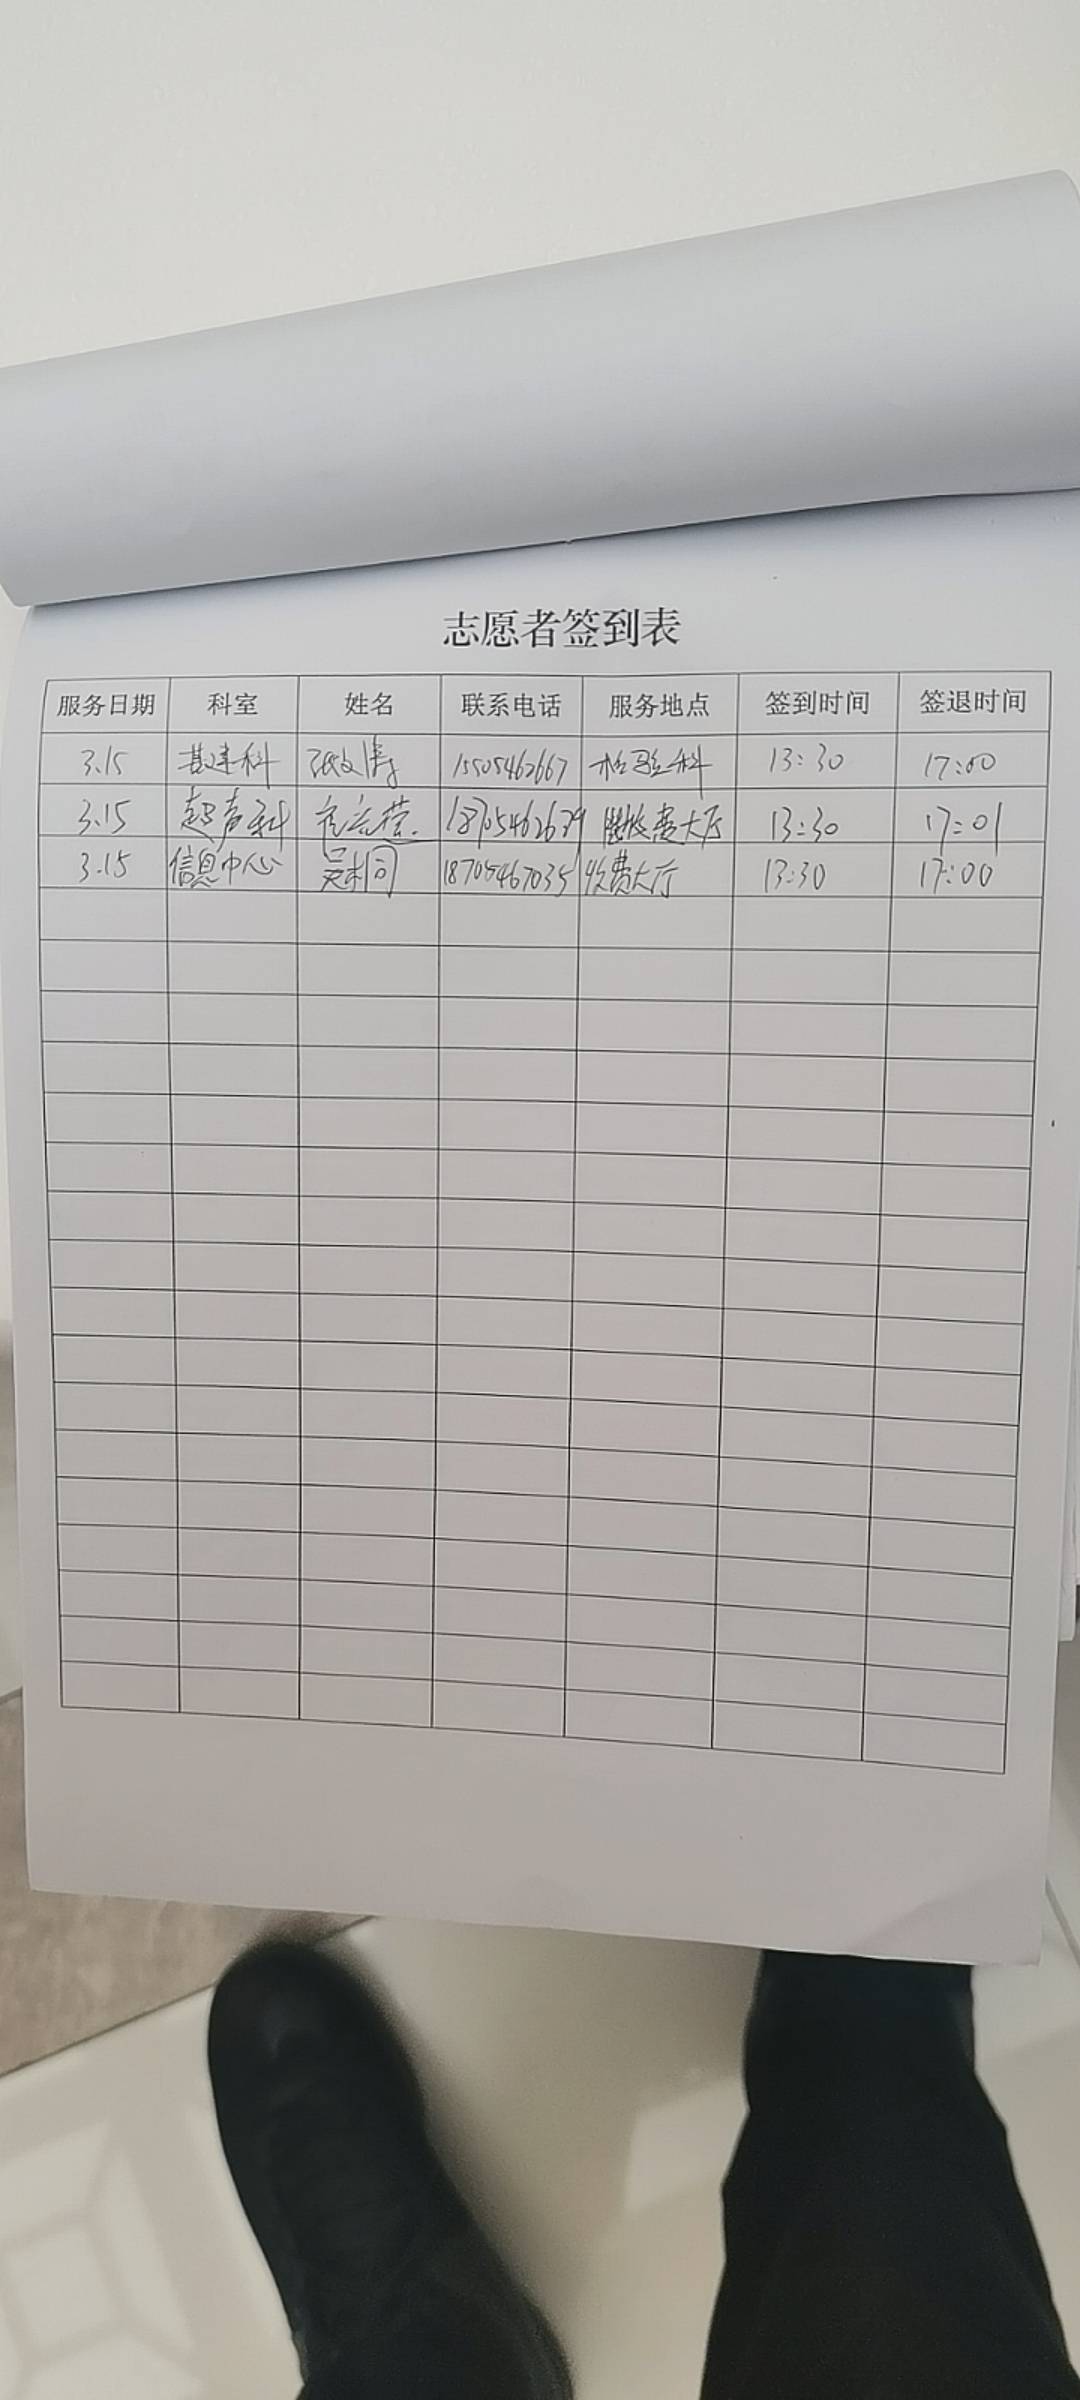 志愿者签到表
服务日期 科室 姓名 联系电话 服务地点 签到时间 签退时间
3.15 基建科 15505462667 检验科 13:30 17:00
3.15 超声科 收费大厅 13:30 17:01
3.15 信息中心 吴桐 18705467035 收费大厅 13:30 17:00